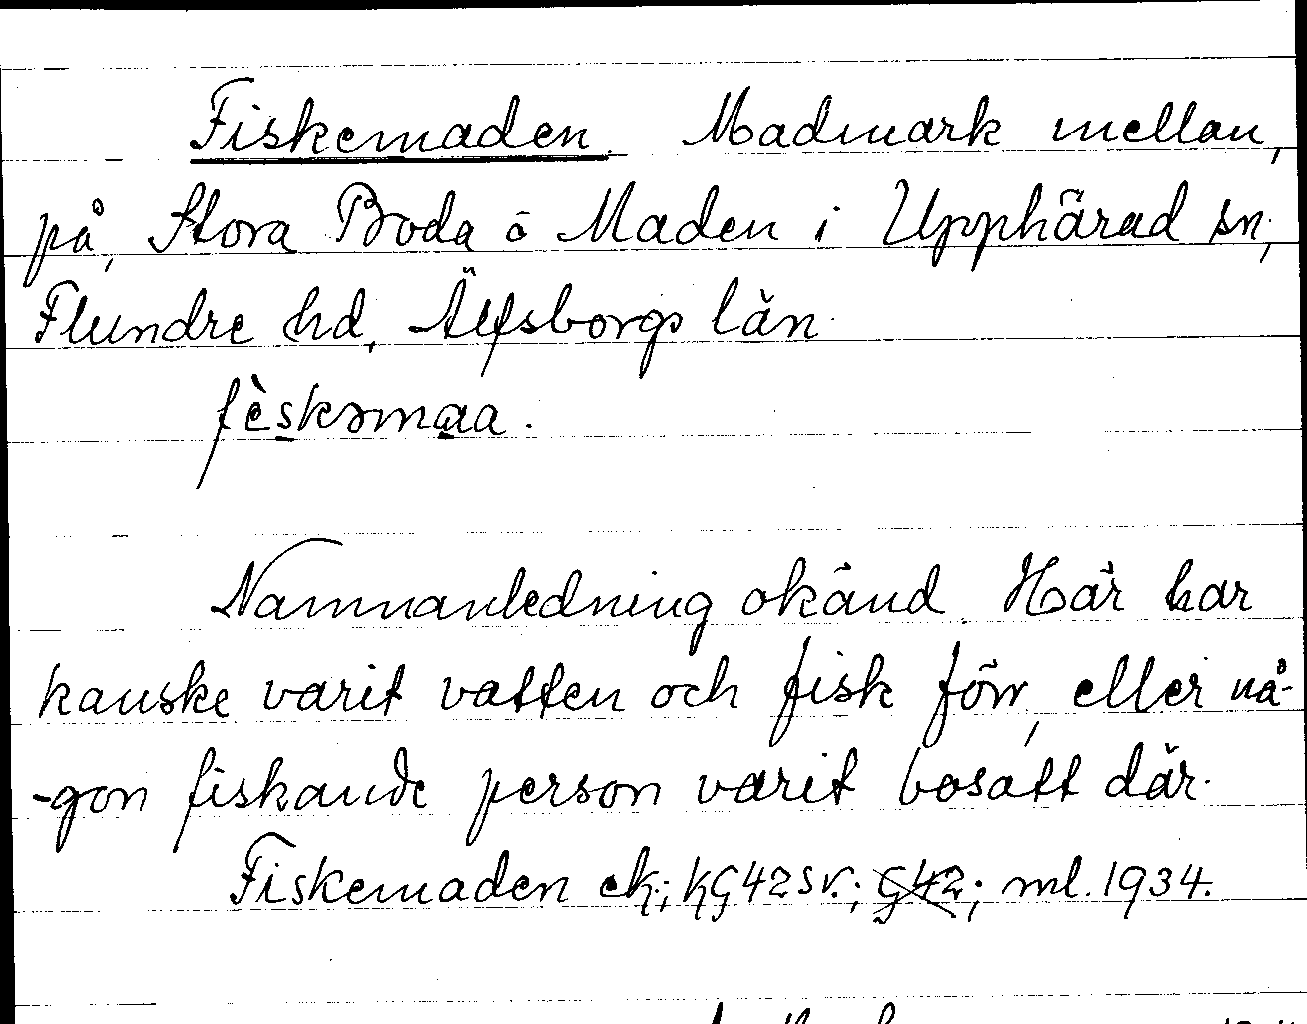 Fiskemaden. Madmark mellan,
på, Stora Boda o Maden i Upphärad sn,
Flundre hd, Älfsborgs län.
fèskəmaa.
Namnanledning okänd. Här har
kanske varit vatten och fisk förr, eller nå-
-gon fiskande person varit bosatt där.
Fiskemaden ek; KG42SV.; G42; ml. 1934.